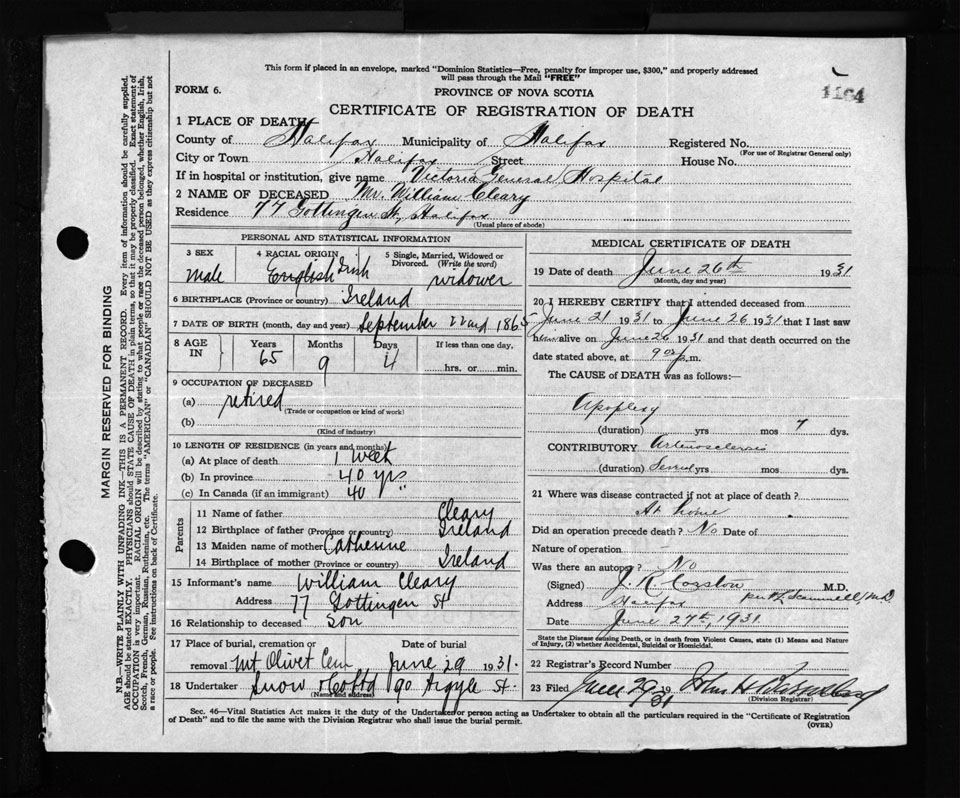 This form if placed in an envelope, marked "Dominion Statistics—Free, penalty for improper use, $300," and properly addressed
will pass through the Mail "FREE"
FORM 6.
PROVINCE OF NOVA SCOTIA
1164
CERTIFICATE OF REGISTRATION OF DEATH
1 PLACE OF DEATH
County of Halifax Municipality of Halifax Registered No.
(For use of Registrar General only)
City or Town Halifax Street House No.
If in hospital or institution, give name Victoria General Hospital
2 NAME OF DECEASED Mr. William Cleary
Residence 77 Gottingen St, Halifax
(Usual place of abode)
PERSONAL AND STATISTICAL INFORMATION
3 SEX 4 RACIAL ORIGIN 5 Single, Married, Widowed or Divorced. (Write the word)
male English Irish widower
6 BIRTHPLACE (Province or country) Ireland
7 DATE OF BIRTH (month, day and year) September 22nd 1865
8 AGE IN Years Months Days If less than one day,
65 9 4 hrs. or min.
9 OCCUPATION OF DECEASED
(a) retired
(Trade or occupation or kind of work)
(b)
(Kind of industry)
10 LENGTH OF RESIDENCE (in years and months)
(a) At place of death 1 week
(b) In province 40 yrs
(c) In Canada (if an immigrant) 40 "
Parents
11 Name of father Cleary
12 Birthplace of father (Province or country) Ireland
13 Maiden name of mother Catherine
14 Birthplace of mother (Province or country) Ireland
15 Informant's name William Cleary
Address 77 Gottingen St
16 Relationship to deceased Son
17 Place of burial, cremation or Date of burial
removal Mt Olivet Cem June 29 1931.
18 Undertaker Snow & Co Ltd 90 Argyle St.
(Name and address)
MEDICAL CERTIFICATE OF DEATH
19 Date of death June 26th 1931
(Month, day and year)
20 I HEREBY CERTIFY that I attended deceased from
June 21 1931 to June 26 1931 that I last saw
him alive on June 26 1931 and that death occurred on the
date stated above, at 9 p.m.
The CAUSE of DEATH was as follows:
Apoplexy
(duration) yrs mos 7 dys.
CONTRIBUTORY Arteriosclerosis
(duration) Several yrs mos dys.
21 Where was disease contracted if not at place of death?
At home
Did an operation precede death? No Date of
Nature of operation
Was there an autopsy? No
(Signed) J. K. M.D.
Address Halifax per
Date June 27th, 1931
State the Disease causing Death, or in death from Violent Causes, state (1) Means and Nature
of Injury, (2) whether Accidental, Suicidal or Homicidal.
22 Registrar's Record Number
23 Filed June 29 1931 John H
(Division Registrar)
Sec. 46—Vital Statistics Act makes it the duty of the Undertaker or person acting as Undertaker to obtain all the particulars required in the "Certificate of Registration
of Death" and to file the same with the Division Registrar who shall issue the burial permit.
(OVER)
MARGIN RESERVED FOR BINDING
N.B.—WRITE PLAINLY WITH UNFADING INK—THIS IS A PERMANENT RECORD. Every item of information should be carefully supplied.
AGE should be stated EXACTLY. PHYSICIANS should STATE CAUSE OF DEATH in plain terms, so that it may be properly classified. Exact statement of
OCCUPATION is very important. RACIAL ORIGIN will be described by stating to what people or race the deceased person belonged, whether English, Irish,
Scotch, French, German, Russian, Ruthenian, etc. The terms "AMERICAN" or "CANADIAN" SHOULD NOT BE USED as they express citizenship but not
a race or people. See instructions on back of Certificate.